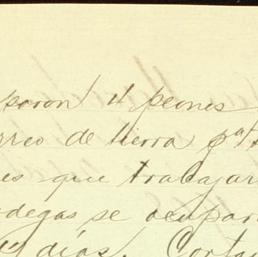 paron 4 peones
rreo de tierra pa
es que trabajar
odegas se ocupar
días. Corta